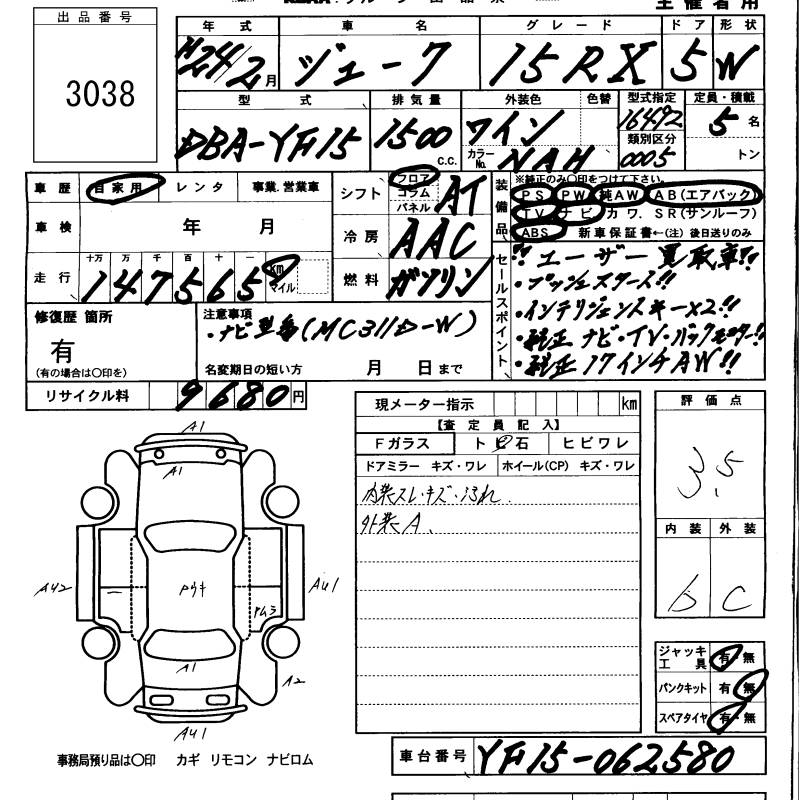 主催者用
出品番号
3038
年式 車名 グレード ドア 形状
H24/2月 ジューク 15RX 5 W
型式 排気量 外装色 色替 型式指定 定員・積載
DBA-YF15 1500 c.c. ワイン 16492 5名
カラーNo. NAH 類別区分 0005 トン
車歴 自家用 レンタ 事業.営業車
シフト フロア コラム パネル AT
装備品 ※純正のみ○印をつけて下さい。
PS PW 純AW AB(エアバック)
TV ナビ カワ. SR(サンルーフ)
ABS 新車保証書←(注)後日送りのみ
車検 年 月
冷房 AAC
走行 十万 万 千 百 十 一
147565 km マイル
燃料 ガソリン
セールスポイント
!!ユーザー買取車!!
・プッシュスタート!!
・インテリジェンスキー×2!!
・純正ナビ・TV・バックモニター!!
・純正17インチAW!!
修復歴 箇所
有
(有の場合は○印を)
注意事項
・ナビ型番(MC311D-W)
名変期日の短い方 月 日まで
リサイクル料 9680円
現メーター指示 km
【査定員記入】
Fガラス トビ石 ヒビワレ
ドアミラー キズ・ワレ ホイール(CP) キズ・ワレ
内装スレ・キズ・汚れ.
外装A.
評価点
3.5
内装 外装
b C
A1
A1
AU2
AU1
Pウキ
Pムラ
A1
A2
AU1
ジャッキ工具 有・無
パンクキット 有 無
スペアタイヤ 有・無
事務局預り品は○印 カギ リモコン ナビロム
車台番号 YF15-062580